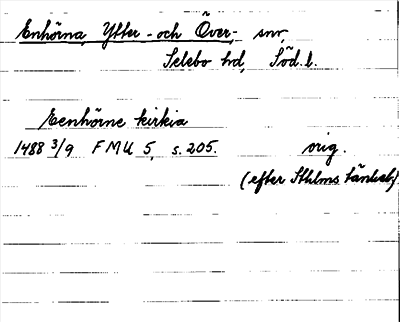 Enhörna, Ytter- och Över-, snr,
Selebo hd, Söd. l.
Eenhörne kirkia
1488 3/9 FMU 5, s. 205. orig.
(efter Sthlms tänkeb.)